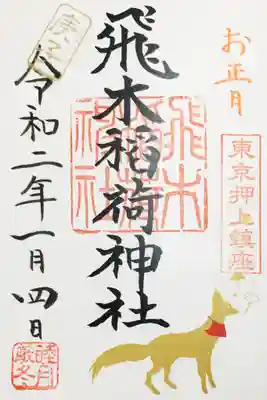 お正月
東京押上鎮座
飛木稲荷神社
飛木稲荷神社
令和二年一月四日
睦月
厳冬